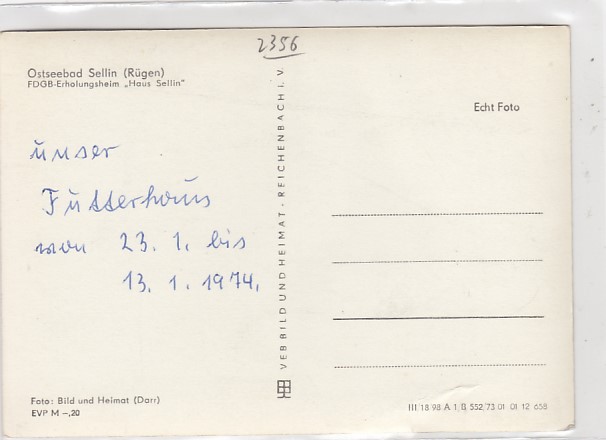 2356
Ostseebad Sellin (Rügen)
FDGB-Erholungsheim „Haus Sellin"
Echt Foto
unser
Futterhaus
von 23. 1. bis
13. 1. 1974.
VEB BILD UND HEIMAT · REICHENBACH I. V.
Foto: Bild und Heimat (Darr)
EVP M –,20
III 18 98 A 1 B 552/73 01 01 12 658